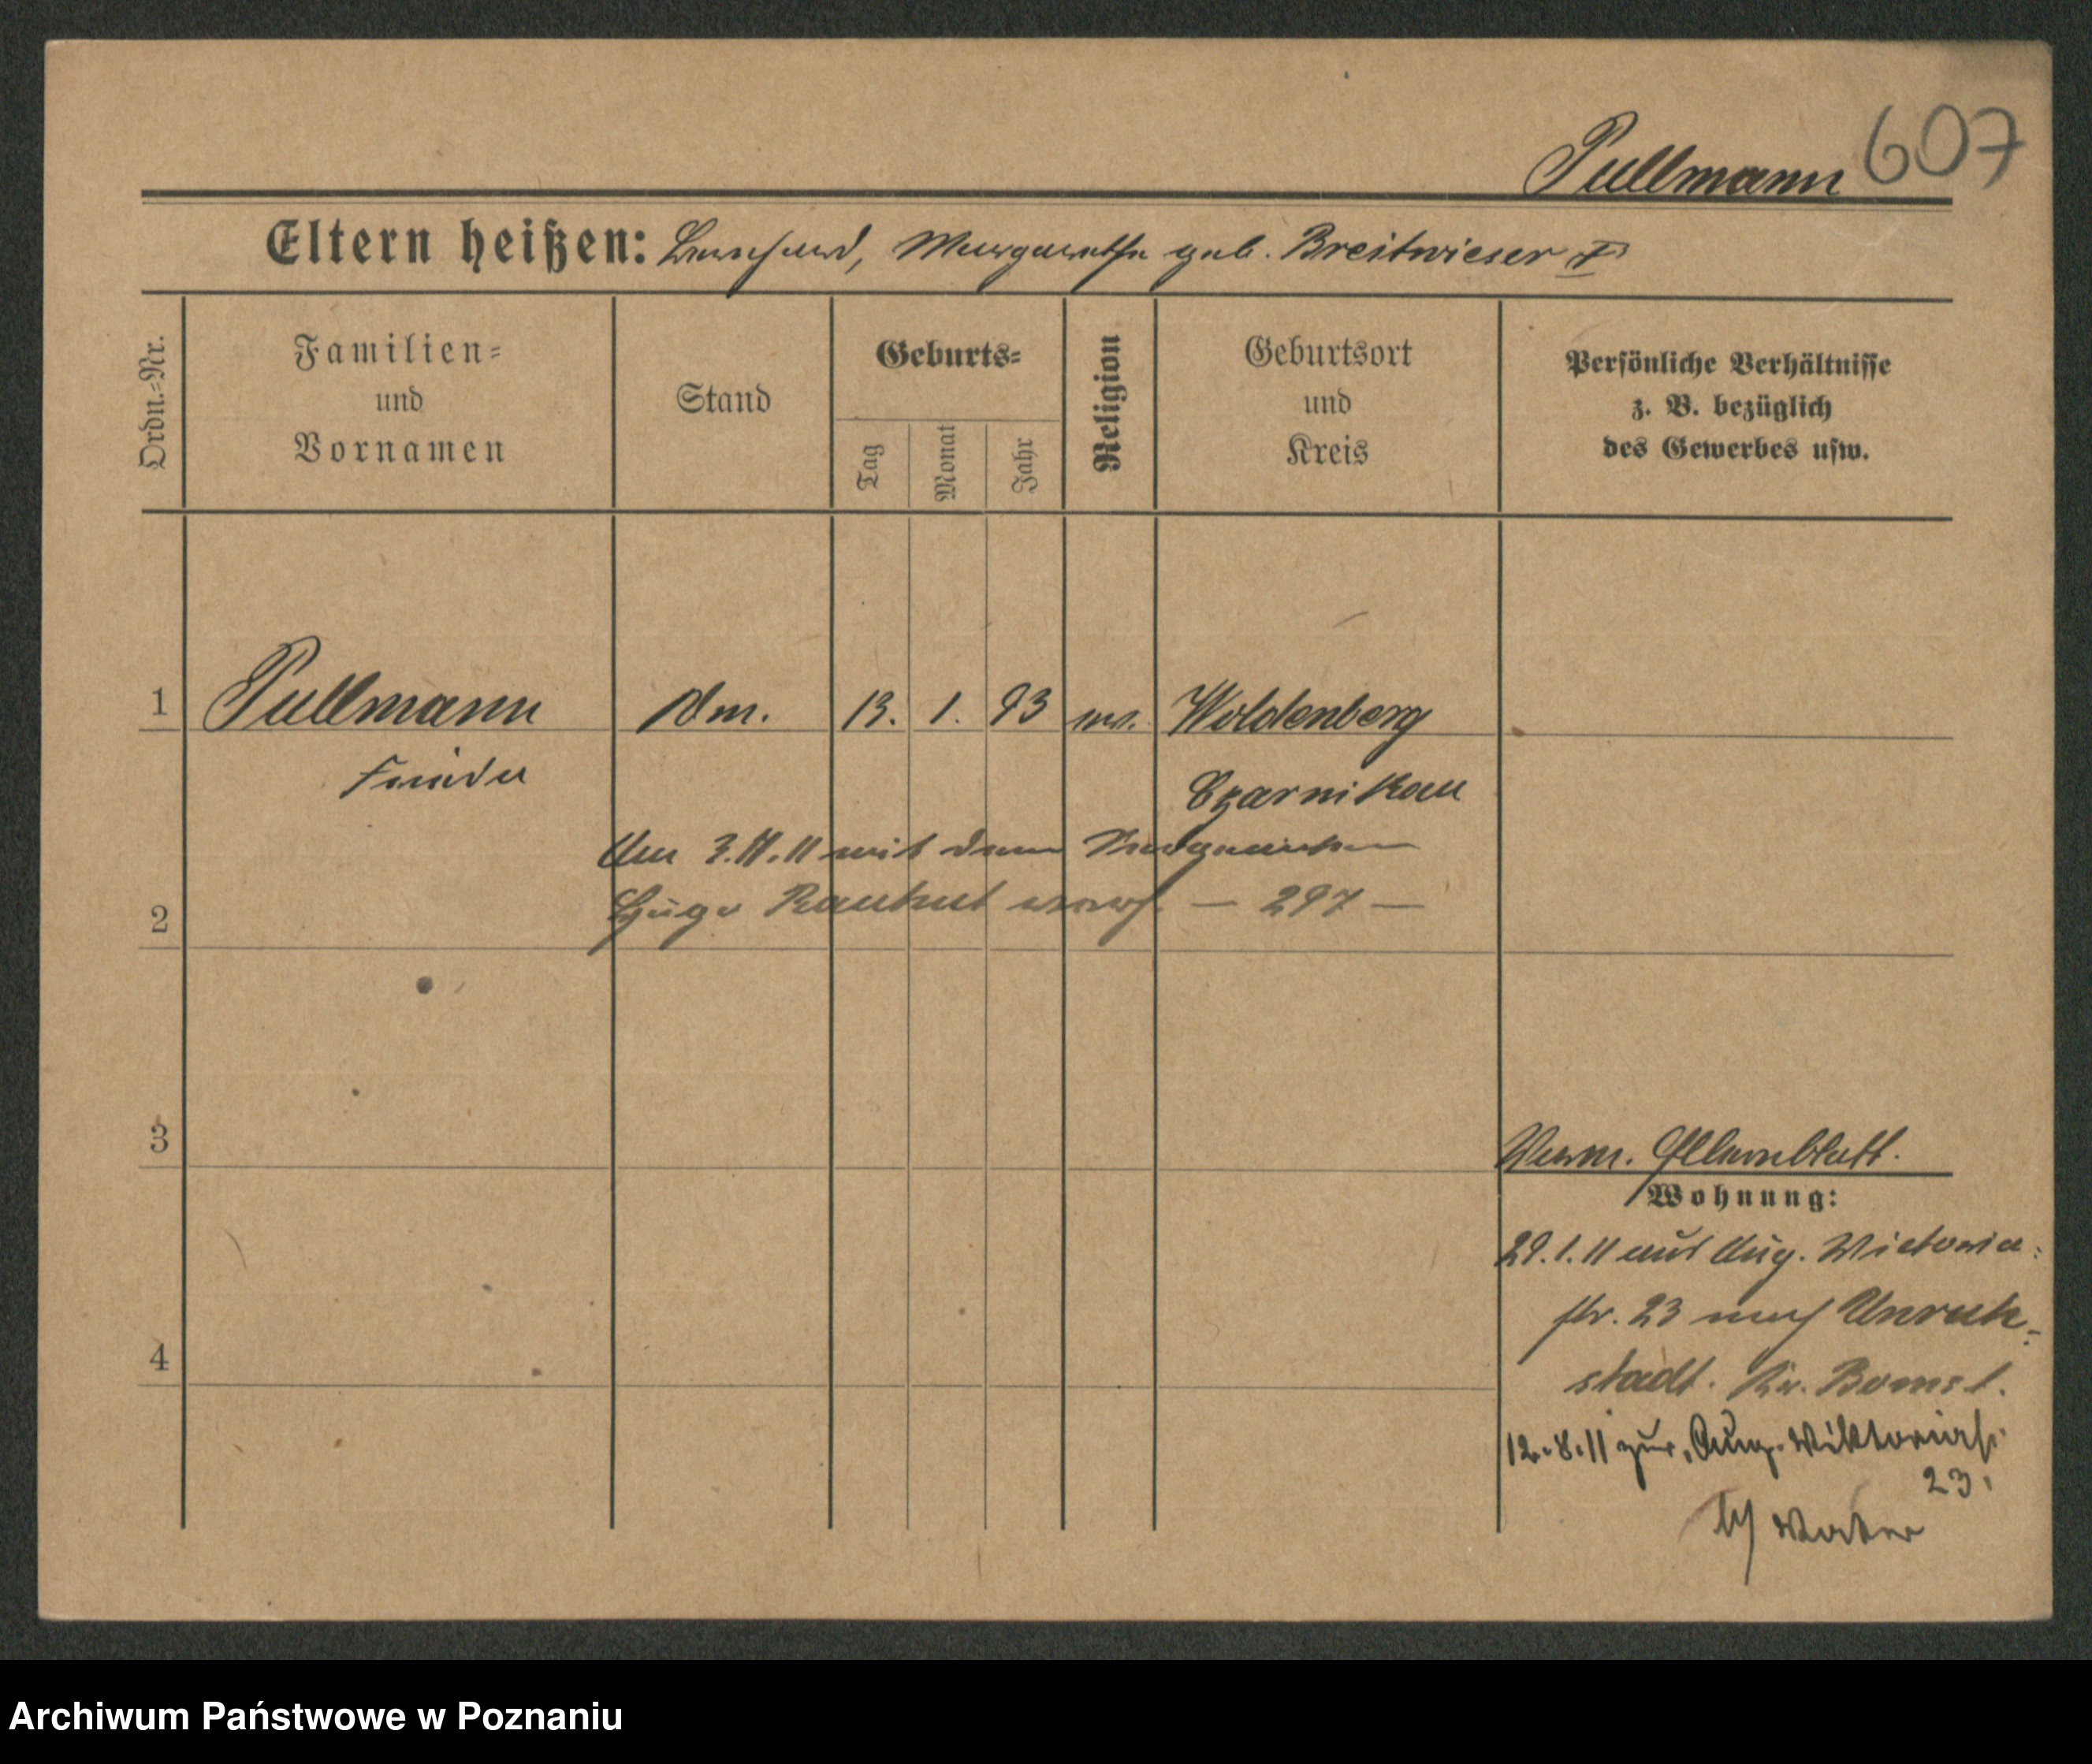 607
Pullmann
Eltern heißen: Bernhard, Margarethe geb. Breitwieser
Ordn.=Nr.
Familien=
und
Vornamen
Stand
Geburts=
Tag
Monat
Jahr
Religion
Geburtsort
und
Kreis
Persönliche Verhältnisse
z. B. bezüglich
des Gewerbes usw.
1 Pullmann 13. 1. 93 Woldenberg
Frieda Czarnikau
Am 3.11.11 mit dem
2 Hugo Rauhut verh. — 297 —
3
Verm. Elternblatt.
Wohnung:
29.1.11 aus Aug. Victoria=
str. 23 nach Unruh=
4 stadt. Kr. Bomst.
12.8.11 zur. Aug. Viktoriast.
23.
b/ Vater